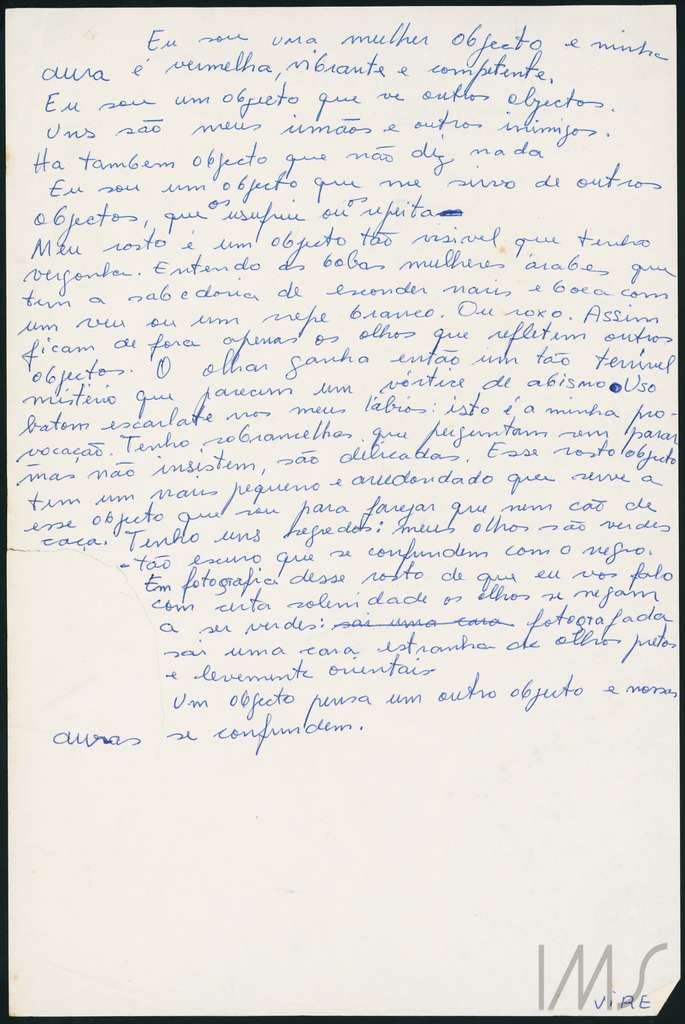 Eu sou uma mulher objecto e minha
aura é vermelha, vibrante e competente.
Eu sou um objecto que ve outros objectos.
Uns são meus irmãos e outros inimigos.
Ha tambem objecto que não diz nada
Eu sou um objecto que me sirvo de outros
objectos, que os usufrui ou os rejeita
Meu rosto é um objecto tão visivel que tenho
vergonha. Entendo as bobas mulheres árabes que
tem a sabedoria de esconder nariz e boca com
um veu ou um crepe branco. Ou roxo. Assim
ficam de fora apenas os olhos que refletem outros
objectos. O olhar ganha então um tão terrivel
mistério que parecem um vórtice de abismo. Uso
batom escarlate nos meus lábios: isto é a minha pro-
vocação. Tenho sobrancelhas que perguntam sem parar
mas não insistem, são delicadas. Esse rosto objecto
tem um nariz pequeno e arredondado que serve a
esse objecto que sou para farejar que nem cão de
caça. Tenho uns segredos: meus olhos são verdes
tão escuro que se confundem com o negro.
Em fotografia desse rosto de que eu vos falo
com certa solenidade os olhos se negam
a ser verdes: sai uma cara fotografada
sai uma cara estranha de olhos pretos
e levemente orientais
Um objecto pensa um outro objecto e nossas
auras se confundem.
IMS
VIRE